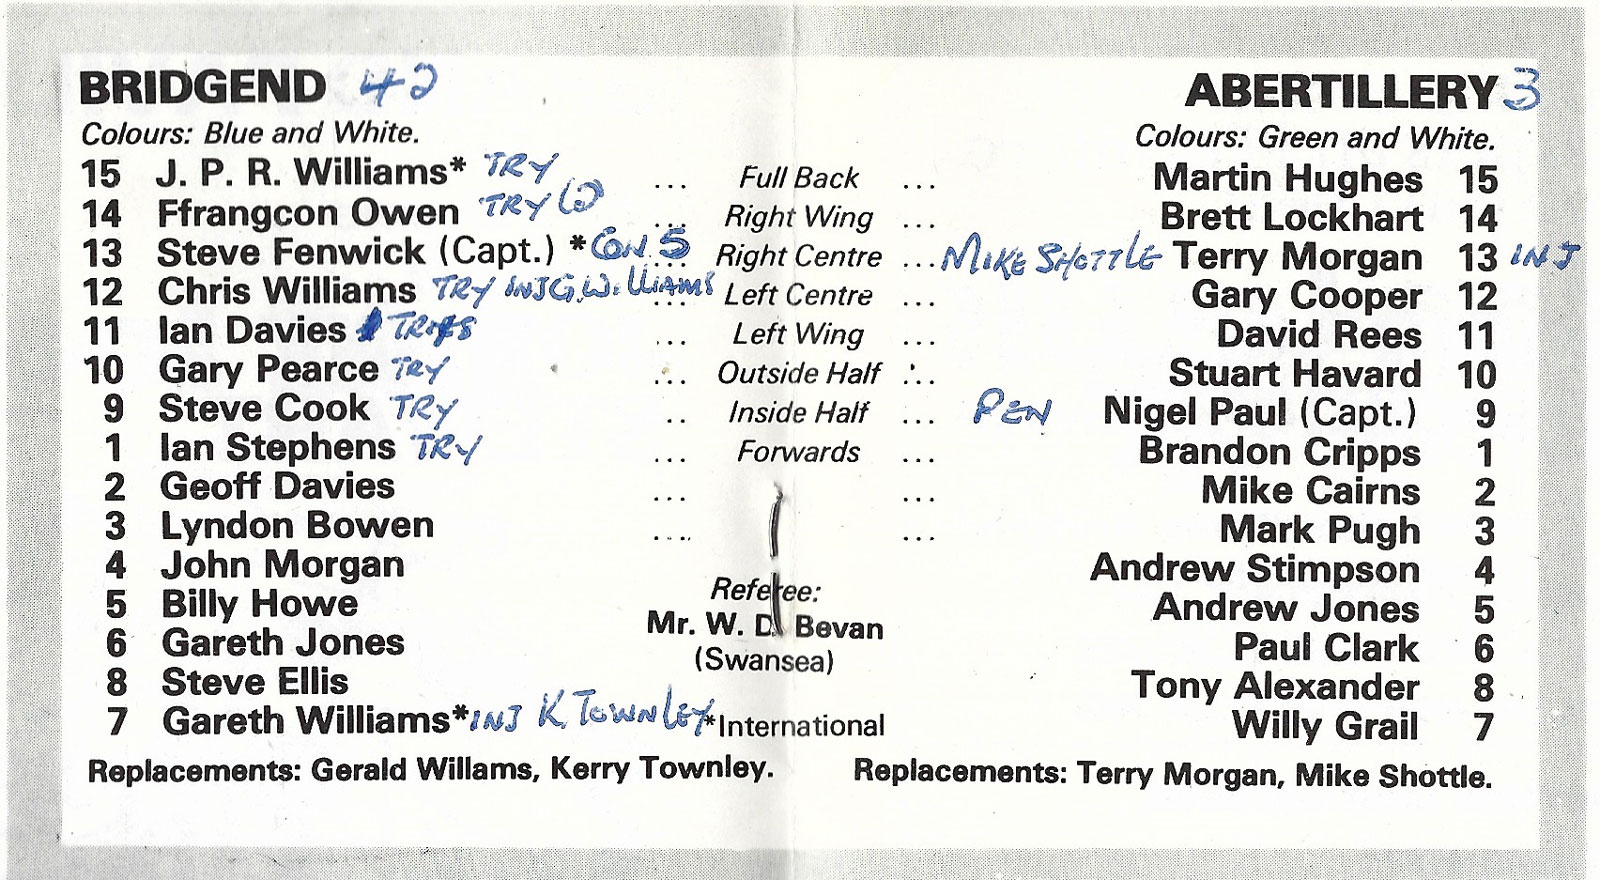 BRIDGEND 42 ABERTILLERY 3
Colours: Blue and White. Colours: Green and White.
15 J. P. R. Williams* TRY ... Full Back ... Martin Hughes 15
14 Ffrangcon Owen TRY (2) ... Right Wing ... Brett Lockhart 14
13 Steve Fenwick (Capt.) * CON 5 ... Right Centre ... MIKE SHOTTLE Terry Morgan 13 INJ
12 Chris Williams TRY INJ G. WILLIAMS ... Left Centre ... Gary Cooper 12
11 Ian Davies ... Left Wing ... David Rees 11
10 Gary Pearce TRY ... Outside Half ... Stuart Havard 10
9 Steve Cook TRY .. Inside Half ... PEN Nigel Paul (Capt.) 9
1 Ian Stephens TRY ... Forwards ... Brandon Cripps 1
2 Geoff Davies ... ... Mike Cairns 2
3 Lyndon Bowen .... ... Mark Pugh 3
4 John Morgan Andrew Stimpson 4
Referee:
5 Billy Howe Andrew Jones 5
Mr. W. D. Bevan
6 Gareth Jones Paul Clark 6
(Swansea)
8 Steve Ellis Tony Alexander 8
7 Gareth Williams* INJ K TOWNLEY *International Willy Grail 7
Replacements: Gerald Willams, Kerry Townley. Replacements: Terry Morgan, Mike Shottle.